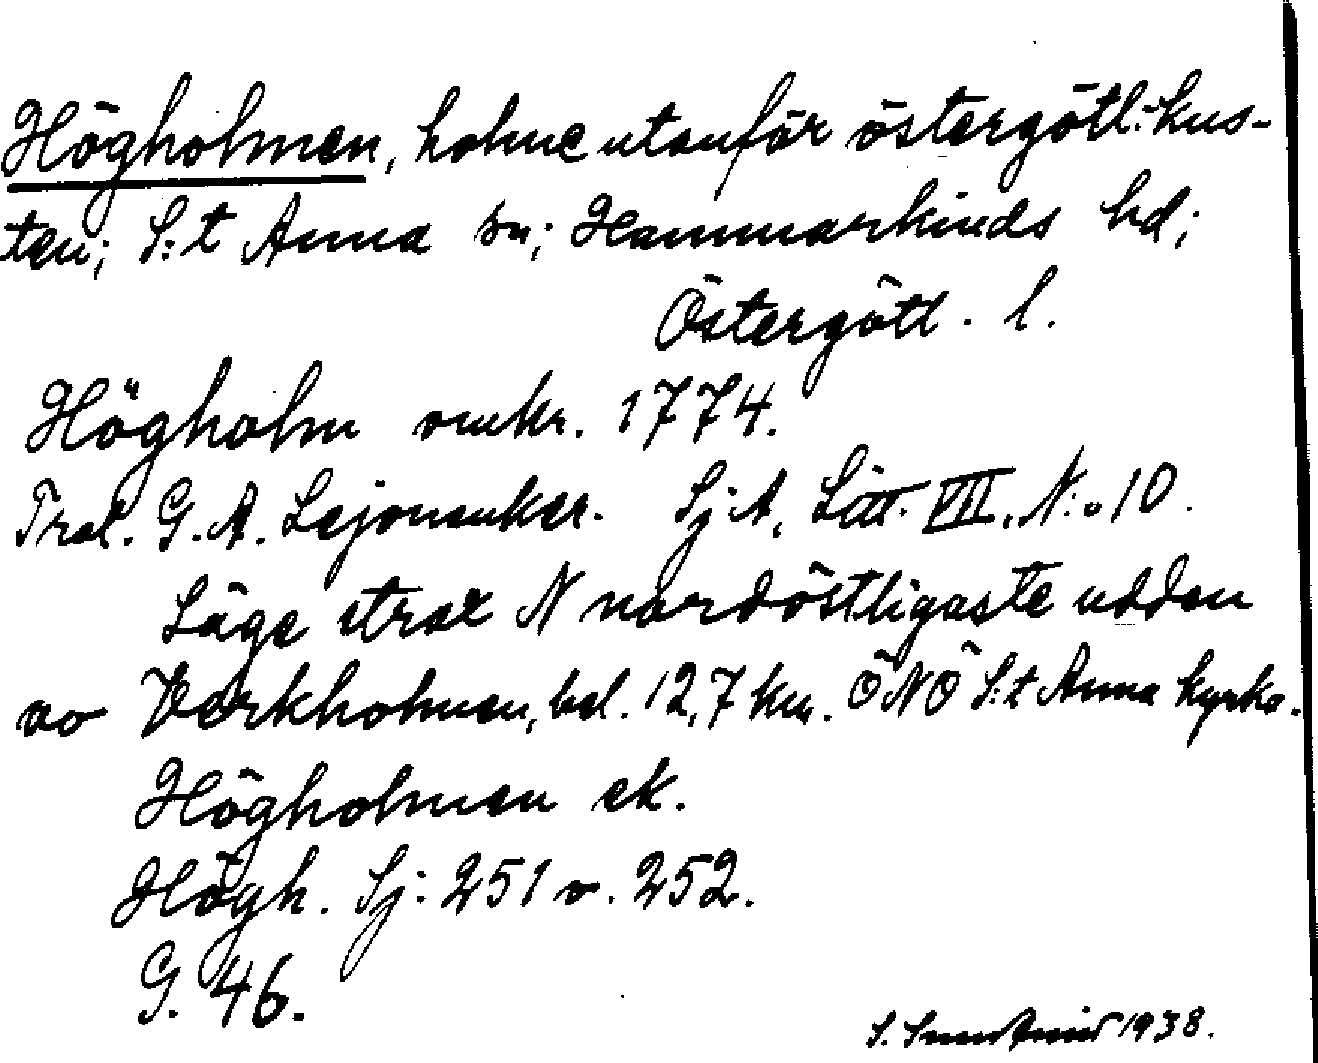 Högholmen, holme utanför östergötl:kus-
ten; S:t Anna sn; Hammarkinds hd;
Östergötl. l.
Högholm omkr. 1774.
Trol. G. A. Lejonanker. Sj A, Litt. VII, N:o 10.
Läge strax N nordöstligaste udden
av Verkholmen, bel. 12,7 km. ÖNÖ S:t Anna kyrka.
Högholmen ek.
Högh. Sj: 251 o. 252.
G. 46.
S. 1938.